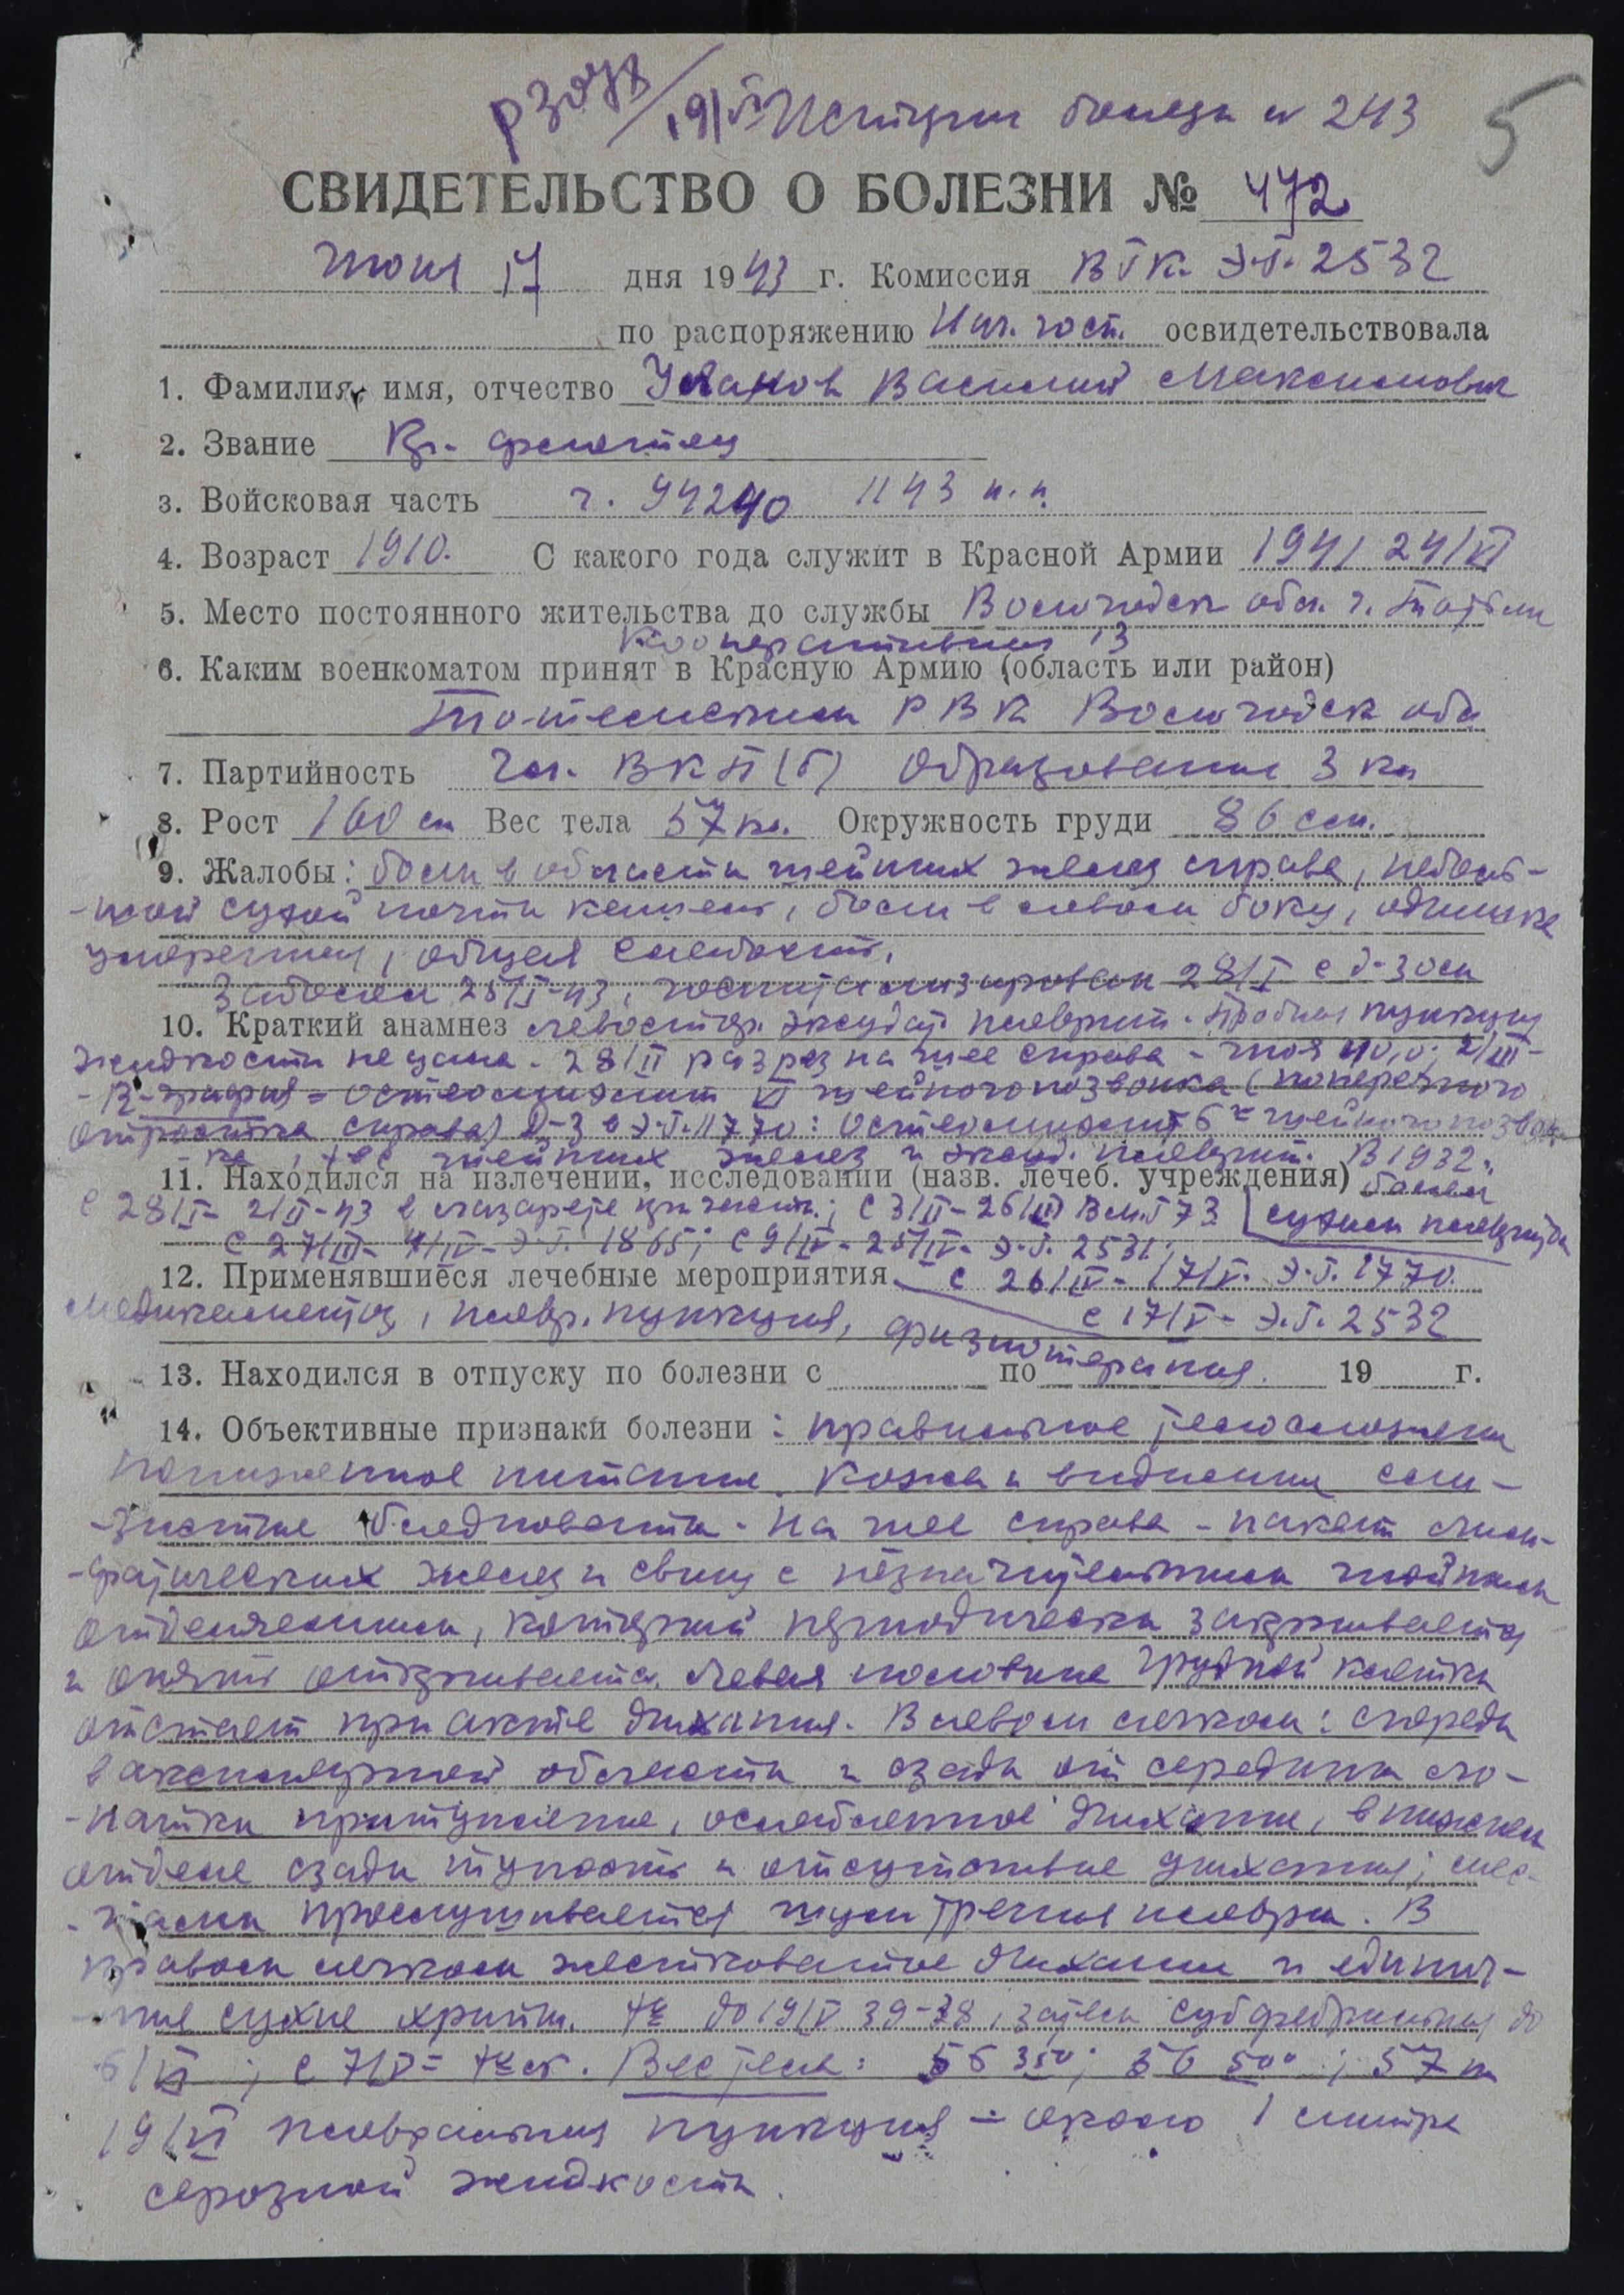 19/VI История болезни N 243
5
СВИДЕТЕЛЬСТВО О БОЛЕЗНИ № 472
Июня 17 дня 1943 г. Комиссия ВТК Э.Г. 2532
по распоряжению Нач. госп. освидетельствовала
1. Фамилия, имя, отчество Уланов Василий Максимович
2. Звание Кр. флотец
3. Войсковая часть ч. 94240 1143 п.п.
4. Возраст 1910. С какого года служит в Красной Армии 1941 24/VI
5. Место постоянного жительства до службы Вологодск обл. г. Тотьма
Кооперативная 13
6. Каким военкоматом принят в Красную Армию (область или район)
Тотемским РВК Вологодск обл
7. Партийность Чл. ВКП(б) Образование 3 кл
8. Рост 160 см Вес тела 57 кг. Окружность груди 86 см.
9. Жалобы: боли в области шейных желез справа, неболь-
-шой сухой почти кашель, боли в левом боку, одышка
умеренная, общая слабость.
Заболел 25/I-43, госпитализирован 28/I с д-зом
10. Краткий анамнез левостор. экссудат. плеврит. Пробная пункция
жидкости не дала. 28/II разрез на шее справа - гноя 40,0. 2/III-
-R-графия = остеомиэлит VI шейного позвонка (поперечного
отростка справа) Д-з в Э.Г. 1770: Остеомиэлит 6го шейного позвон-
-ка, tbc шейных желез и эксуд. плеврит. В 1932 г.
11. Находился на излечении, исследовании (назв. лечеб. учреждения) болел
с 28/I- 2/II-43 в лазарете при части; с 3/II-26/III В М.Г 73 сухим плевритом
с 27/III- 4/IV- Э.Г. 1865; с 9/IV- 25/IV- Э.Г. 2531;
12. Применявшиеся лечебные мероприятия с 26/IV- 17/V. Э.Г. 1770.
Медикаментоз, плевр. пункция, с 17/V- Э.Г. 2532
физиотерапия.
13. Находился в отпуску по болезни с по 19 г.
14. Объективные признаки болезни: правильное телосложение
пониженное питание. Кожа и видимые сли-
-зистые бледноваты. На шее справа - пакет лим-
-фатических желез и свищ с незначительным гнойным
отделяемым, который периодически закрывается
и опять открывается. Левая половина грудной клетки
отстает при акте дыхания. В левом легком: спереди
в аксилярной области и сзади от середины ло-
-патки притупление, ослабленное дыхание, в нижнем
отделе сзади тупость и отсутствие дыхания; мес-
-тами прослушивается шум трения плевры. В
правом легком жестковатое дыхание и единич-
-ные сухие хрипы. to до 19/V 39-38, затем субфебрильная до
6/VI; Вес тела: 56 350; 56 500; 57 кг
19/VI плевральная пункция - около 1 литра
серозной жидкости.